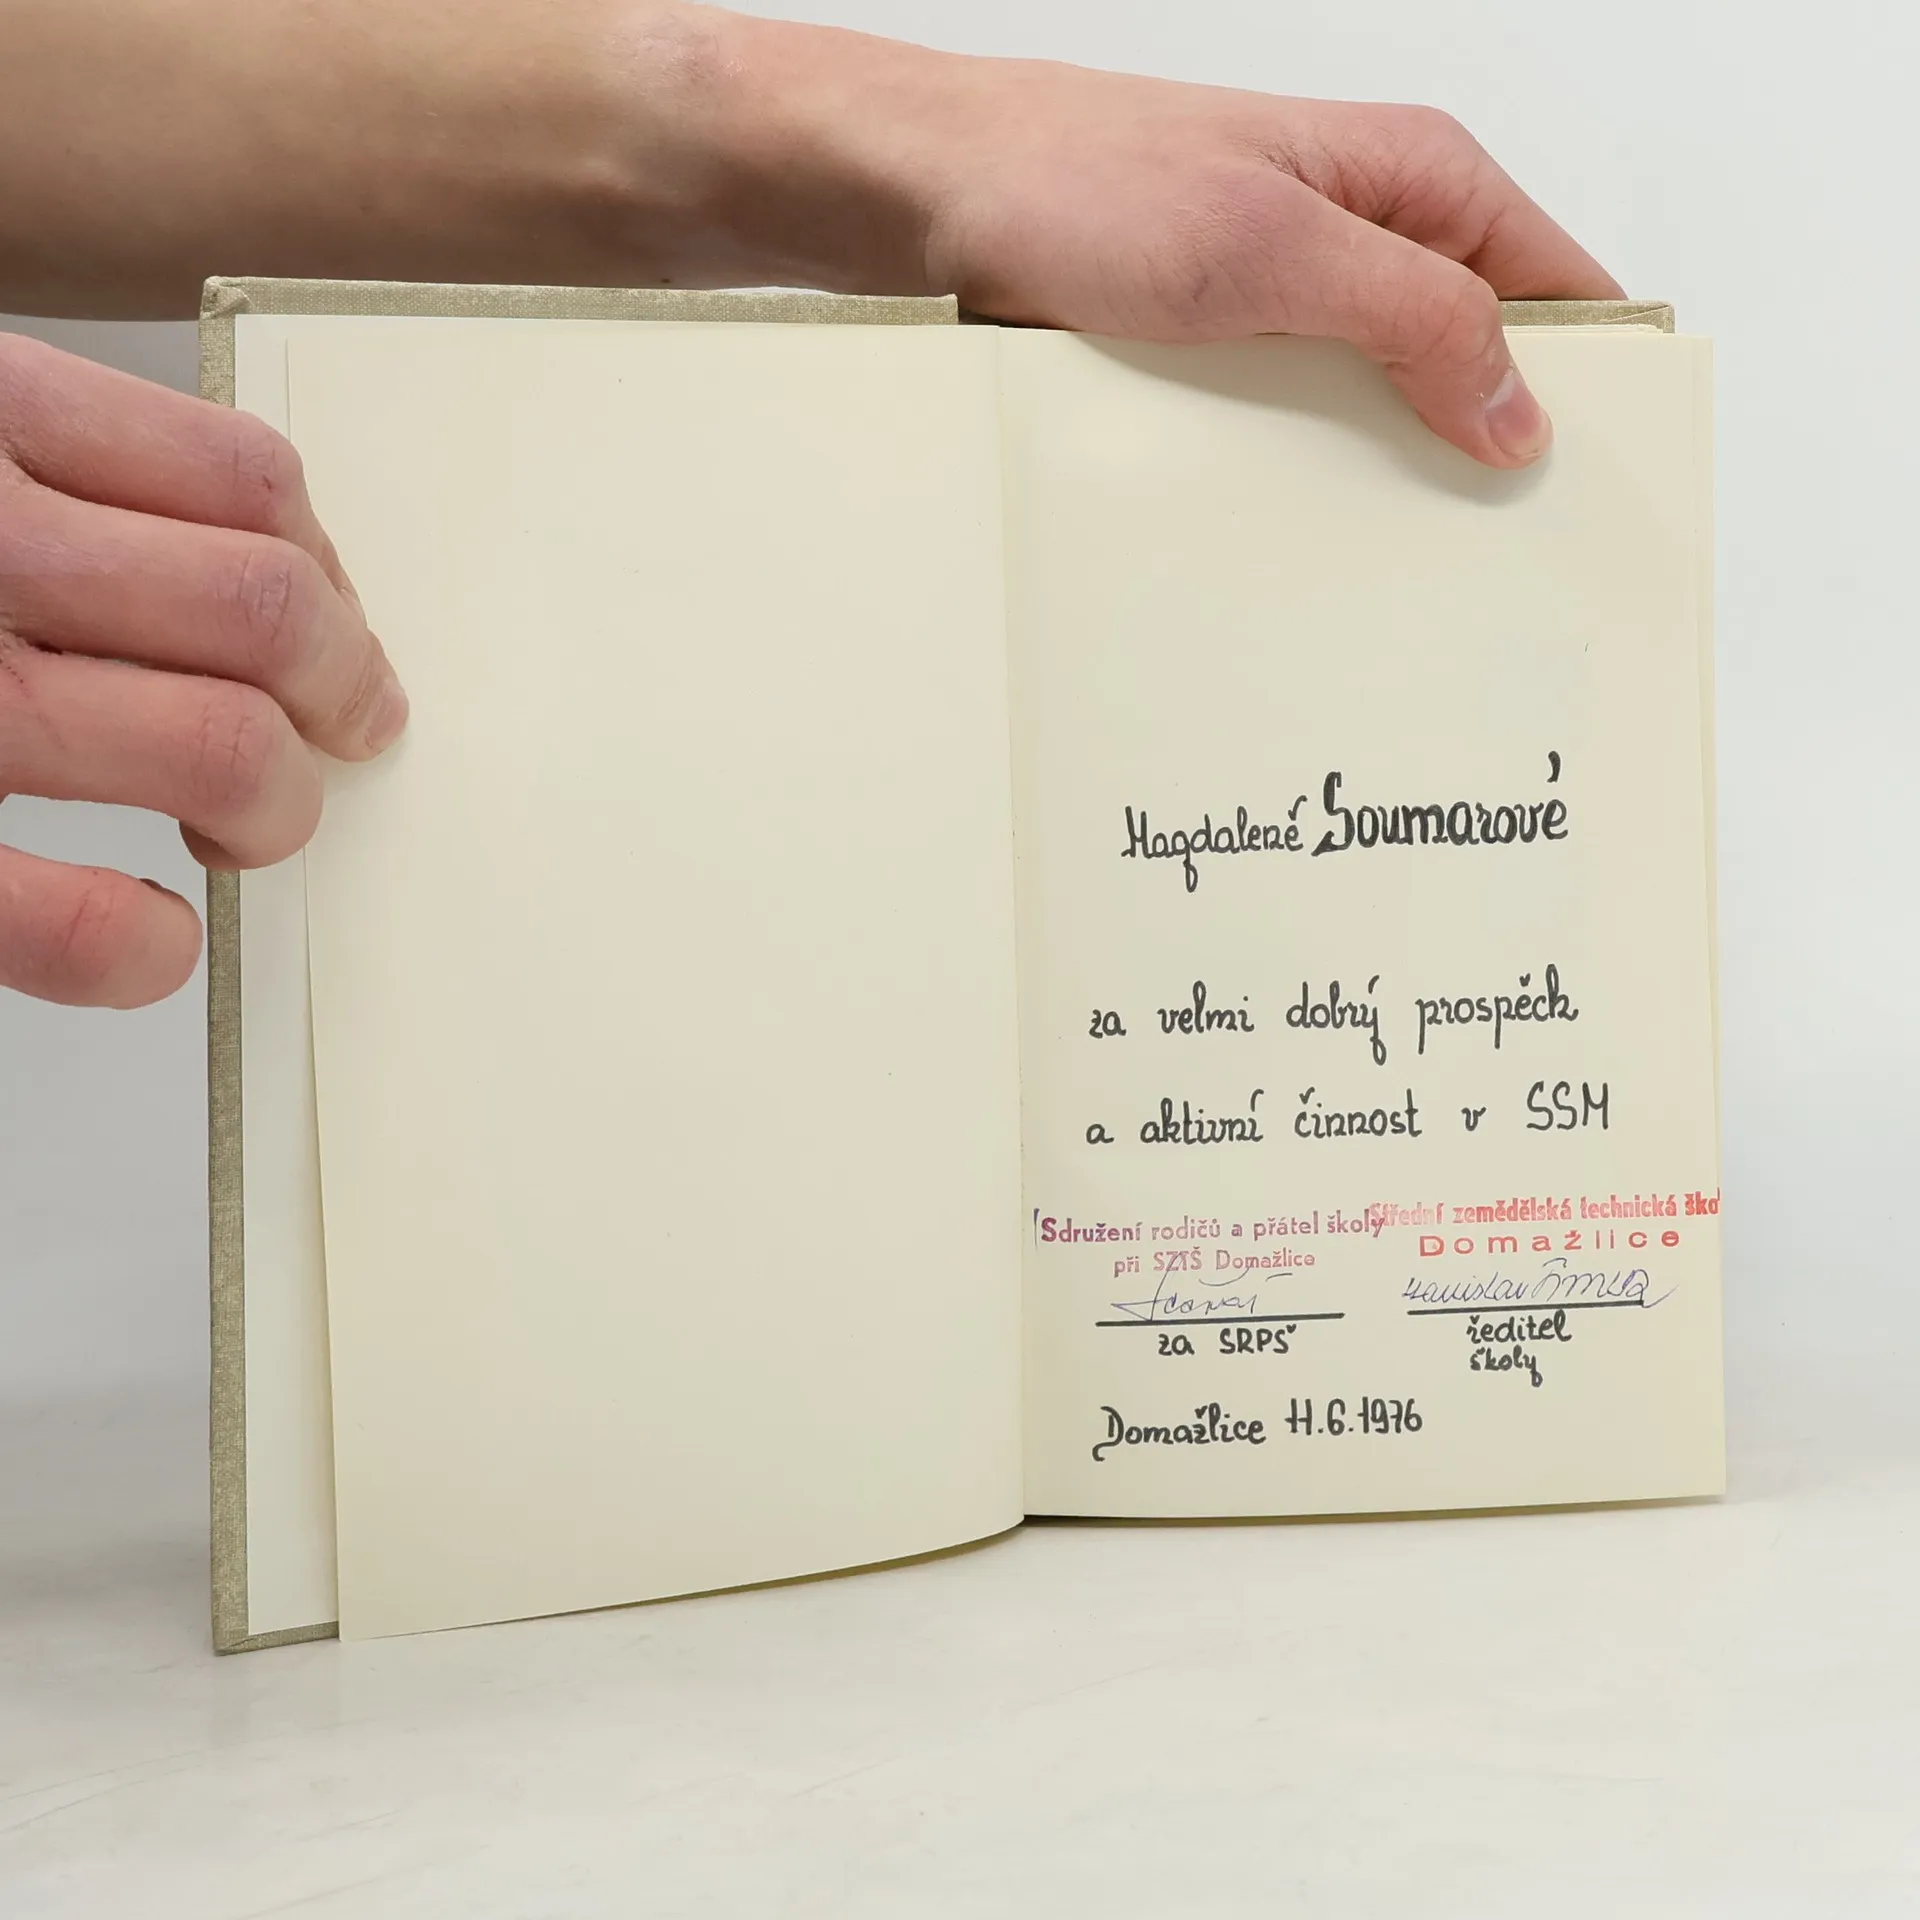 Magdaleně Soumarové
za velmi dobrý prospěch
a aktivní činnost v SSM
Sdružení rodičů a přátel školy
při SZTŠ Domažlice
Střední zemědělská technická ško
Domažlice
za SRPŠ
ředitel
školy
Domažlice 11.6.1976